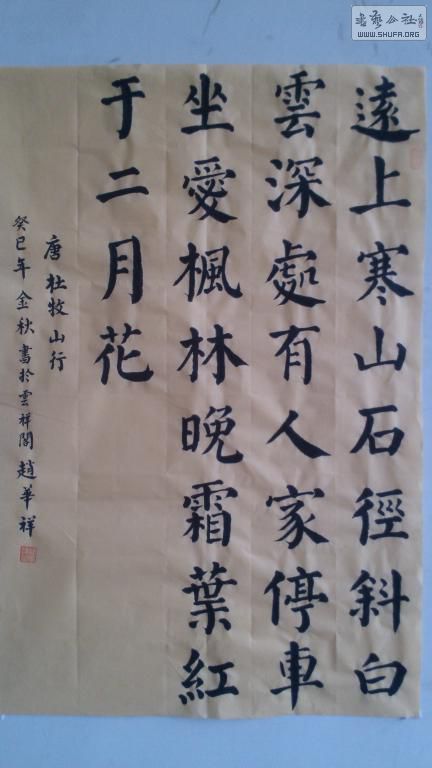 遠上寒山石徑斜白
雲深處有人家停車
坐愛楓林晚霜葉紅
于二月花
唐杜牧山行
癸巳年金秋書於雲祥閣趙華祥
書藝公社
WWW.SHUFA.ORG